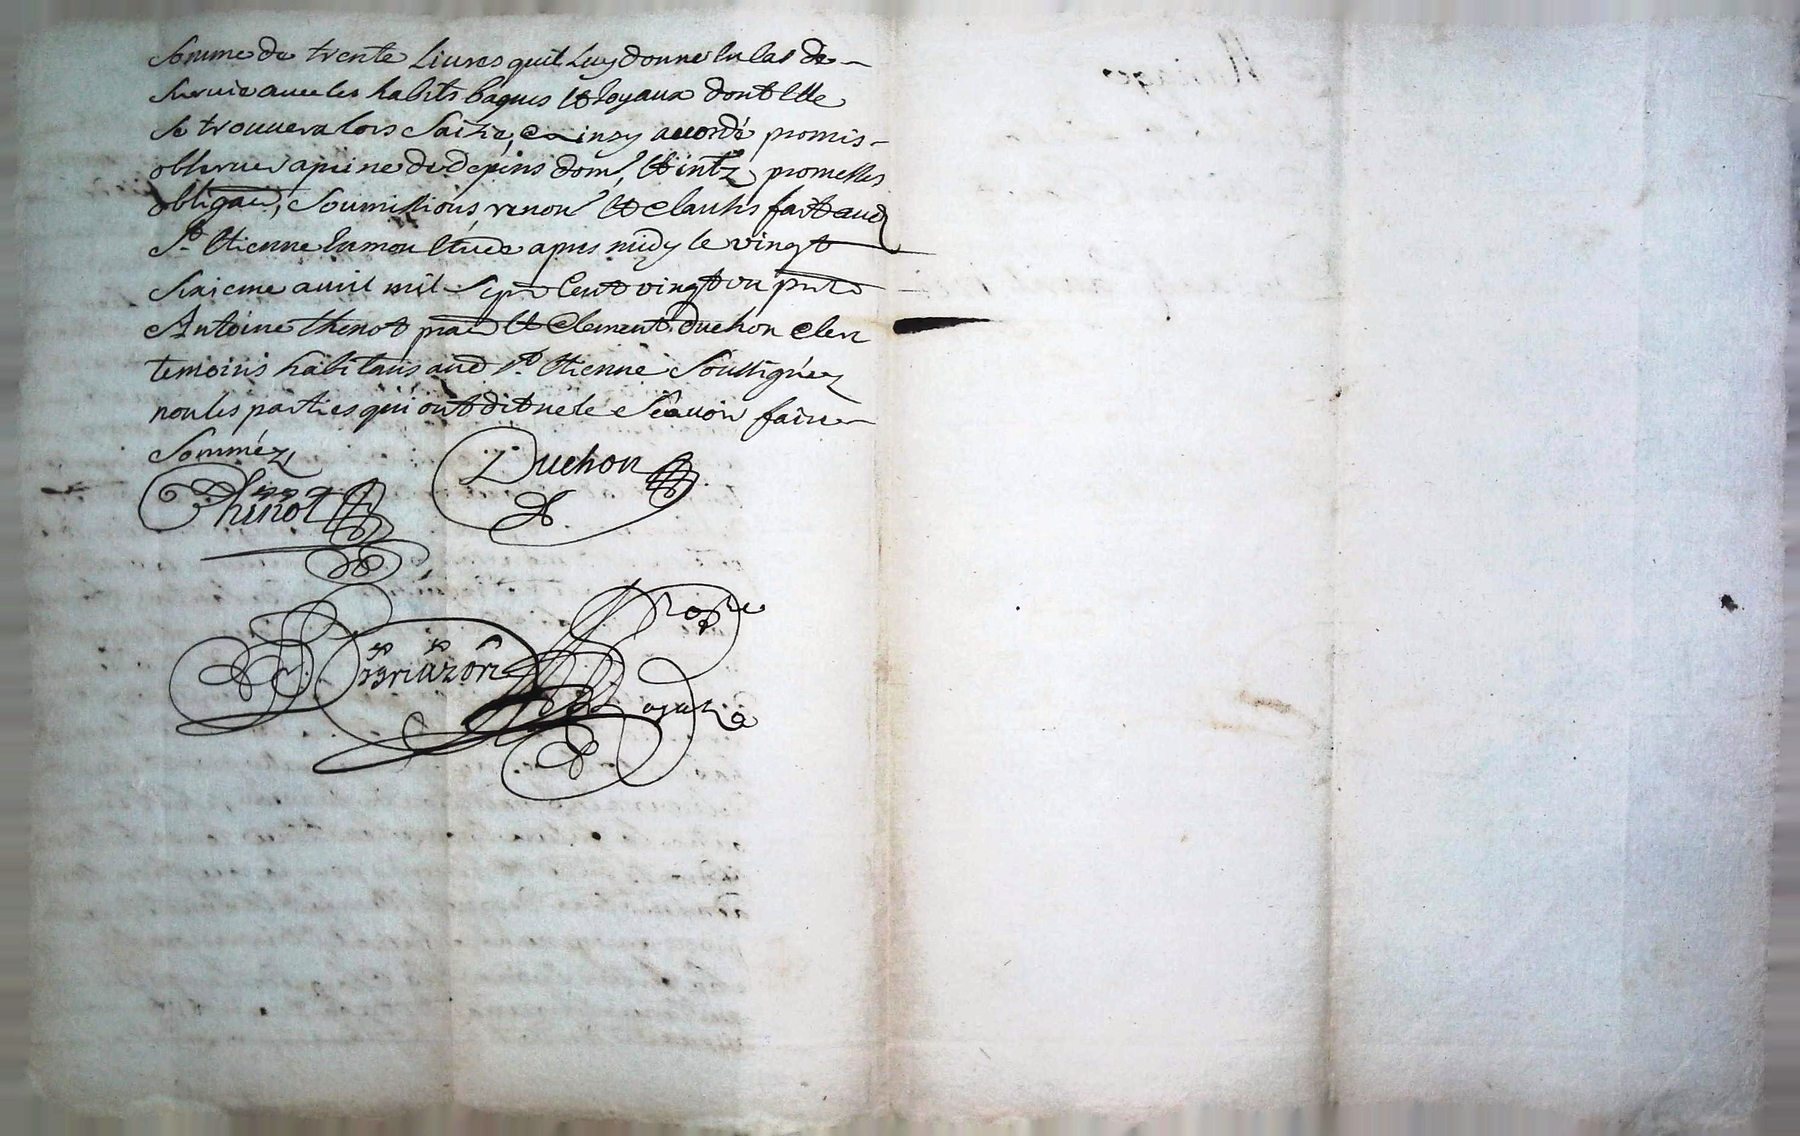 Somme de trente Livres quil Luy donne en cas de
Survie avec les habits bagues et Joyaux dont Elle
Se trouvera lors Saizie, Ainsy accordé promis
observer a peine de depens dom, et intz promesses
obligaõn, Soumissions, renonõn et clauses fait aud
St Etienne En mon Etude apres midy le vingt
Sixieme avril mil Sept Cent vingt un pnts
Antoine thenot prat et Clement duchon clerc
temoins habitans aud St Etienne Soussignez
non les parties qui ont dit ne le Sçavoir faire
Sommez
Thenot
Duchon